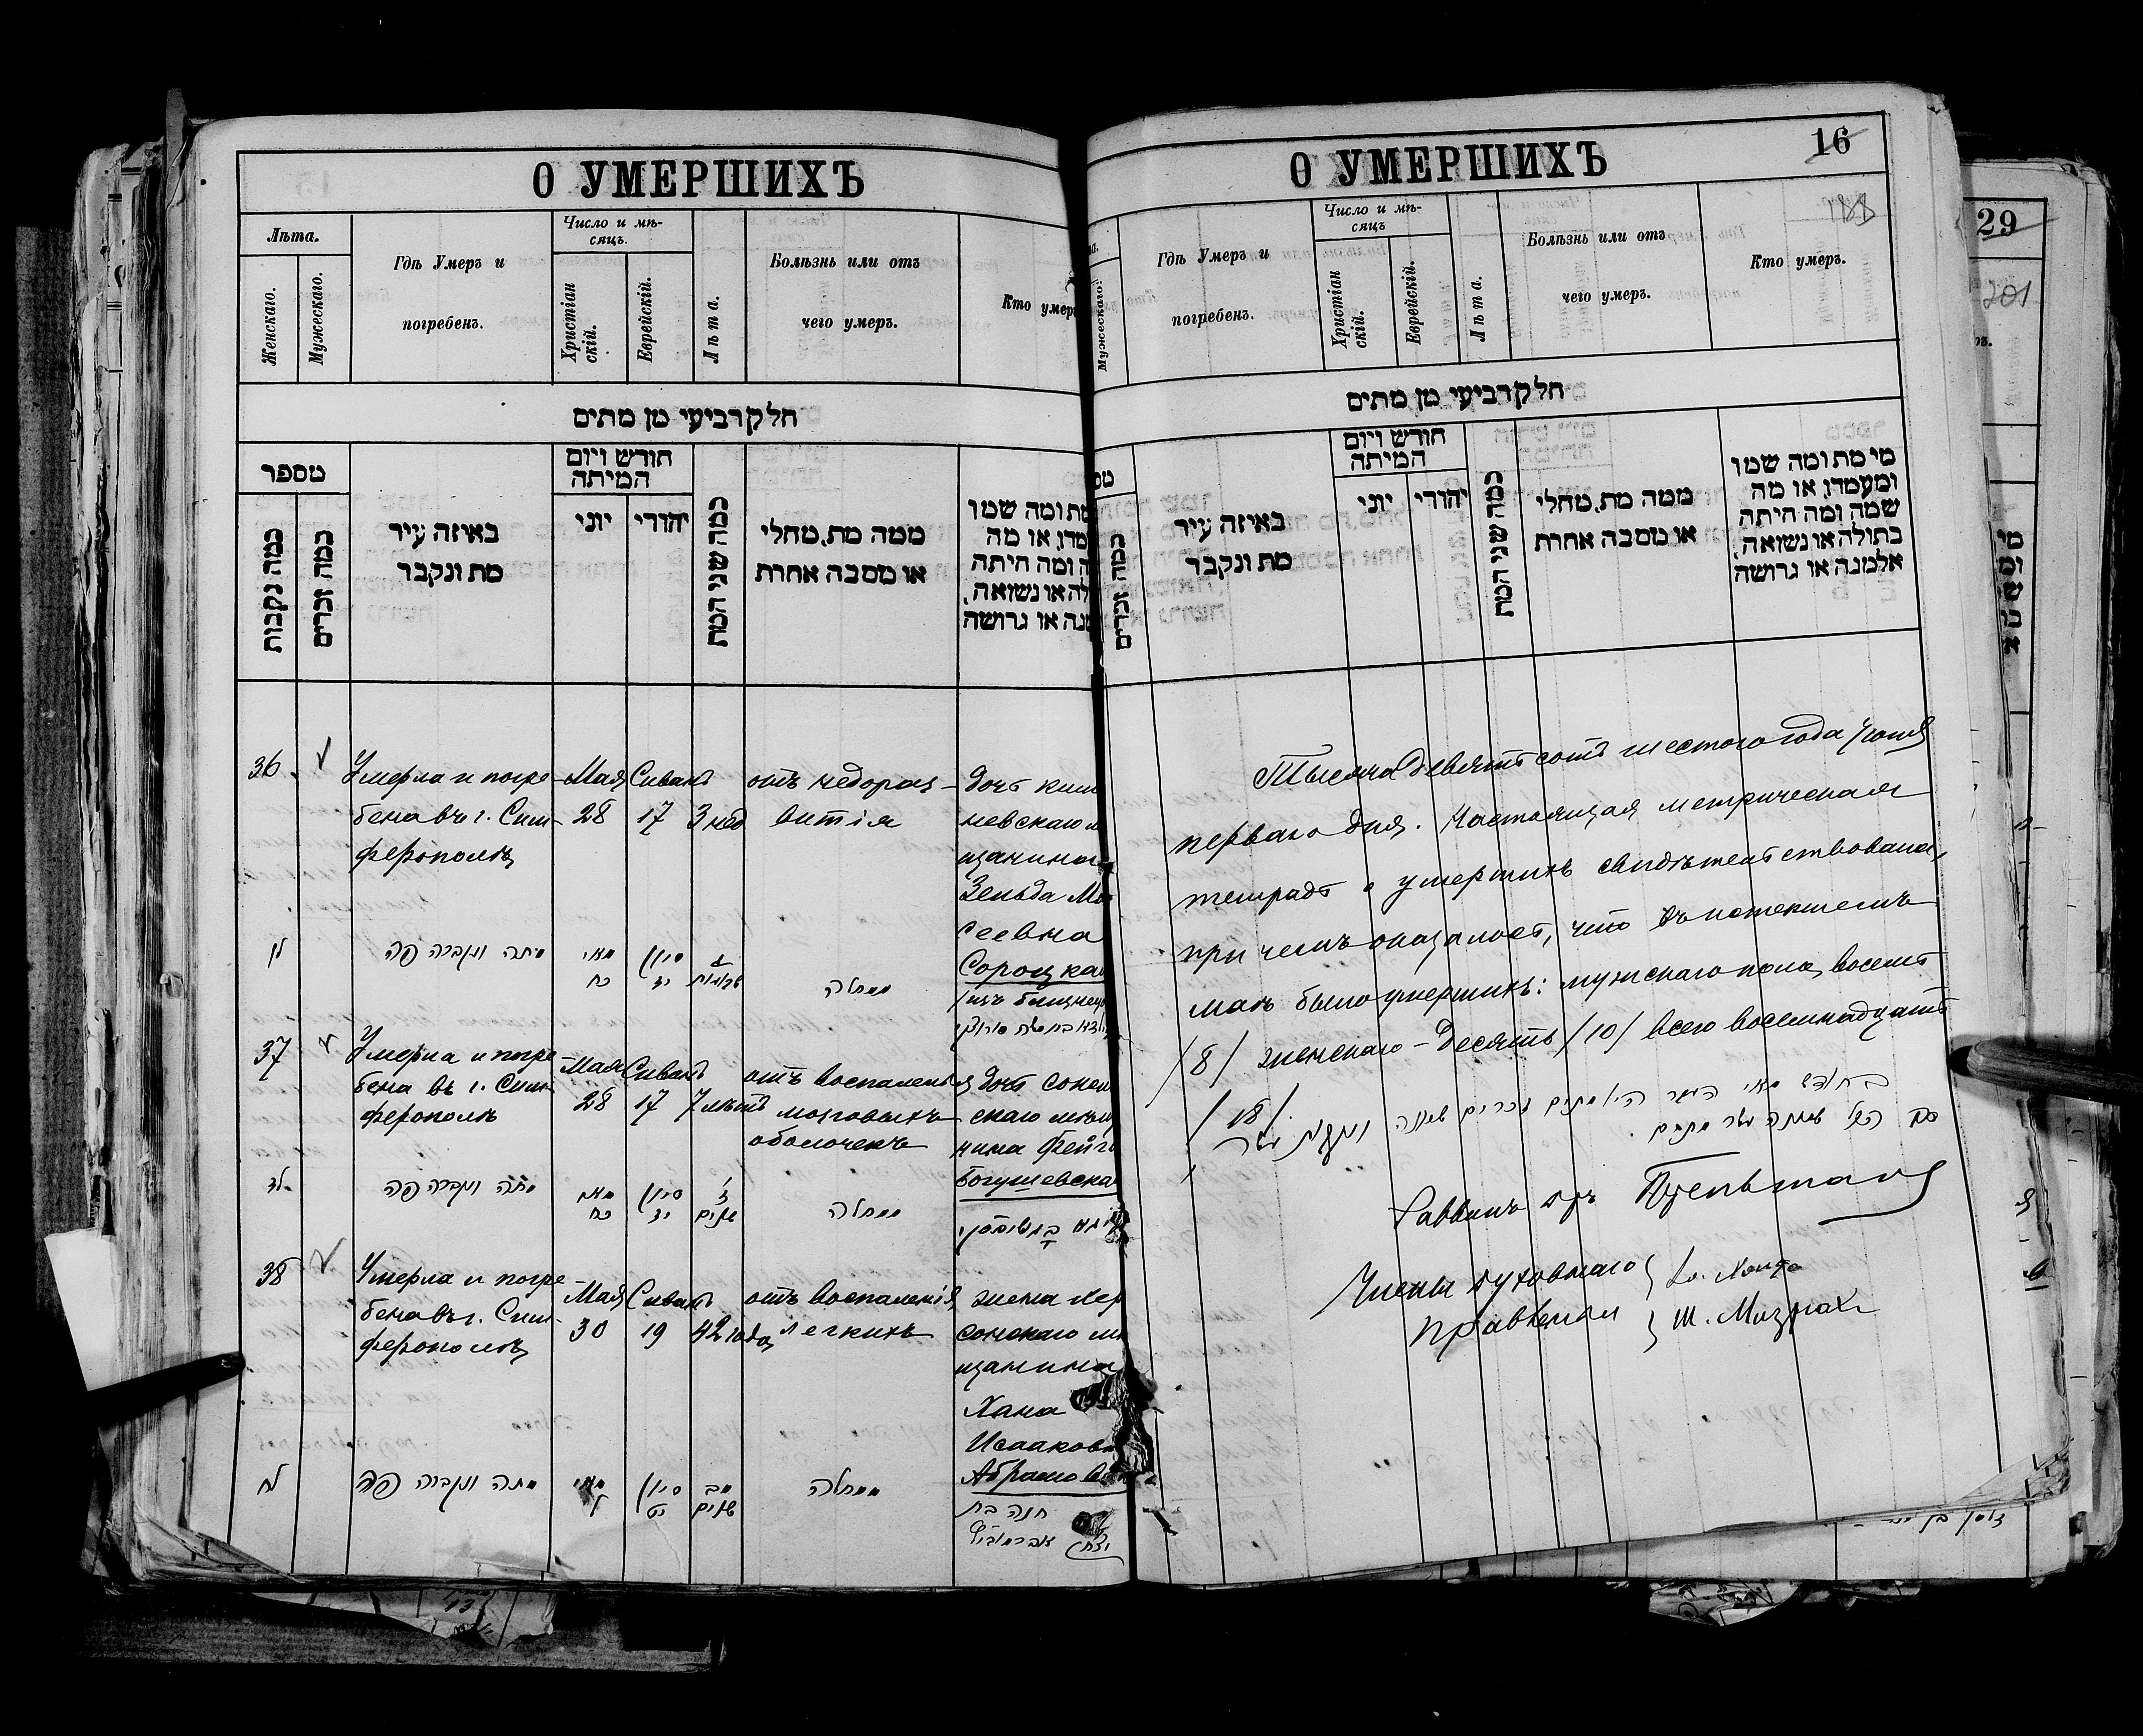 О УМЕРШИХЪ
Лѣта.
Женскаго.
Мужескаго.
Гдѣ Умеръ и
погребенъ.
Число и мѣ-
сяцъ.
Христіан
скій.
Еврейскій.
Лѣта.
Болѣзнь или отъ
чего умеръ.
Кто умер
חלק רביעי מן מתים
מספר
כמה נקבות
כמה זכרים
באיזה עיר
מת ונקבר
חודש ויום
המיתה
יוני
יהודי
כמה שני המת
ממה מת, מחלי
או מסבה אחרת
מת ומה שמו
מדו, או מה
ה ומה היתה
לה או נשואה,
נה או גרושה
36
Умерла и погре-
бена въ г. Сим-
ферополѣ
Мая
28
Сиванъ
17
3 нед
отъ недораз-
витія
дочь киши
невскаго м
щанина
Зельда Мо
сеевна
Сороцка
מתה ונקברה פה
מאי
כח
סיון
יז
ג
שבועות
ממחלה
37
Умерла и погре-
бена въ г. Сим-
ферополѣ
Мая
28
Сиванъ
17
7 лѣтъ
отъ воспаленія
мозговыхъ
оболочекъ
дочь
скаго мѣщ
нина Фейга
Богушевска
לז
מתה ונקברה פה
מאי
כח
סיון
יז
ז
שנים
ממחלה
38
Умерла и погре-
бена въ г. Сим-
ферополѣ
Мая
30
Сиванъ
19
42 года
отъ воспаленія
легкихъ
жена хер
сонскаго мѣ
щанина
Хана
Исааков
Абрамов
לח
מתה ונקברה פה
מאי
ל
סיון
יט
מב
שנים
ממחלה
חנה בת
יצחק
אבראמוביץ
О УМЕРШИХЪ
16
Мужескаго.
Гдѣ Умеръ и
погребенъ.
Число и мѣ-
сяцъ
Христіан
скій.
Еврейскій.
Лѣта.
Болѣзнь или отъ
чего умеръ.
Кто умеръ.
חלק רביעי מן מתים
כמה זכרים
באיזה עיר
מת ונקבר
חודש ויום
המיתה
יוני
יהודי
כמה שני המת
ממה מת, מחלי
או מסבה אחרת
מי מת ומה שמו
ומעמדו, או מה
שמה ומה היתה
בתולה או נשואה,
אלמנה או גרושה
Тысяча девятьсотъ шестого года Іюня
перваго дня. Настоящая метрическая
тетрадь о умершихъ свидѣтельствована,
при чемъ оказалось, что въ истекшемъ
маѣ было умершихъ: мужскаго пола восемь
/8/ женскаго – десять /10/ всего восемнадцать
/18/.
בחודש מאי היו מתים זכרים שמנה ונקבות עשר
סה הכל שמנה עשר מתים.
Раввинъ
Члены духовнаго
правленія
Ш. Мизрахи
29
201